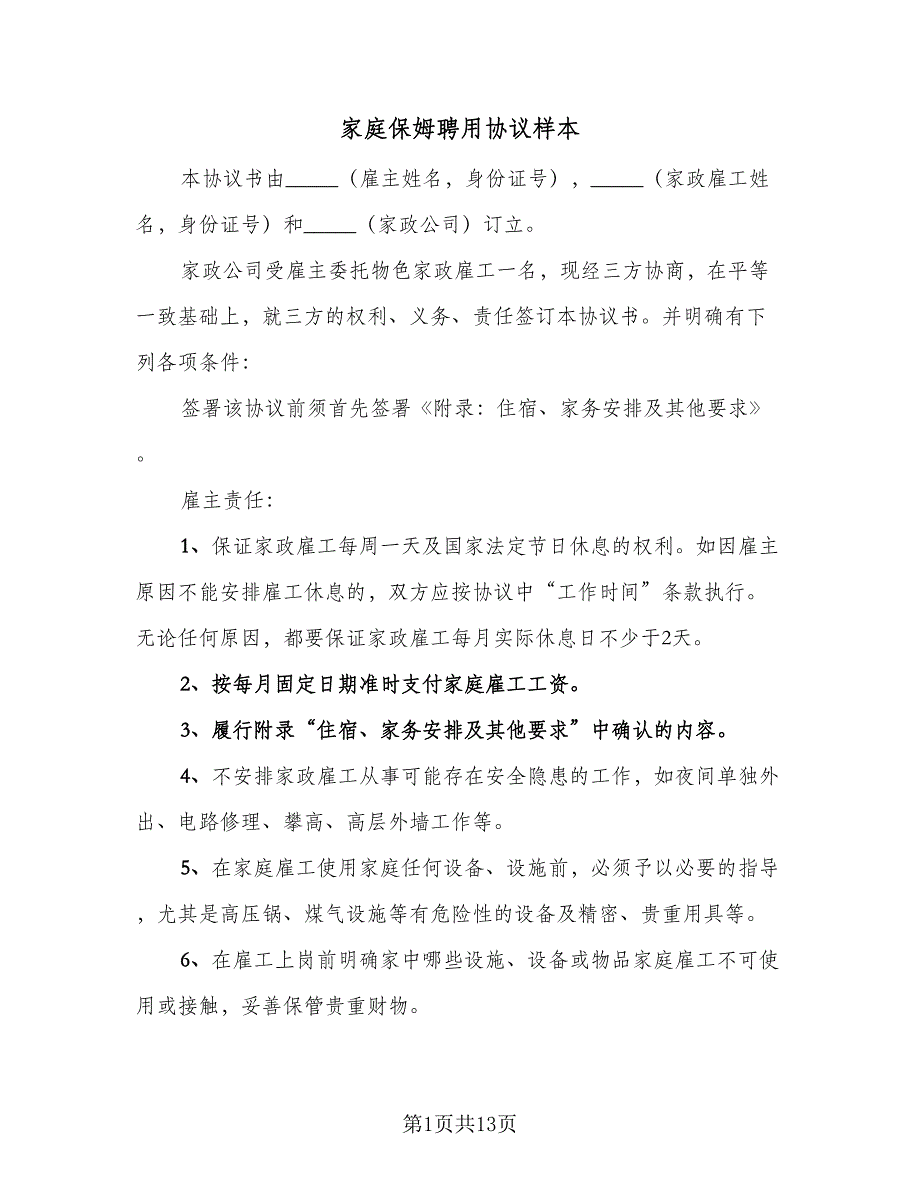 家庭保姆聘用协议样本
本协议书由_____（雇主姓名，身份证号），_____（家政雇工姓
名，身份证号）和_____（家政公司）订立。
家政公司受雇主委托物色家政雇工一名，现经三方协商，在平等
一致基础上，就三方的权利、义务、责任签订本协议书。并明确有下
列各项条件：
签署该协议前须首先签署《附录：住宿、家务安排及其他要求》
。
雇主责任：
1、保证家政雇工每周一天及国家法定节日休息的权利。如因雇主
原因不能安排雇工休息的，双方应按协议中“工作时间”条款执行。
无论任何原因，都要保证家政雇工每月实际休息日不少于2天。
2、按每月固定日期准时支付家庭雇工工资。
3、履行附录“住宿、家务安排及其他要求”中确认的内容。
4、不安排家政雇工从事可能存在安全隐患的工作，如夜间单独外
出、电路修理、攀高、高层外墙工作等。
5、在家庭雇工使用家庭任何设备、设施前，必须予以必要的指导
，尤其是高压锅、煤气设施等有危险性的设备及精密、贵重用具等。
6、在雇工上岗前明确家中哪些设施、设备或物品家庭雇工不可使
用或接触，妥善保管贵重财物。
第1页共13页